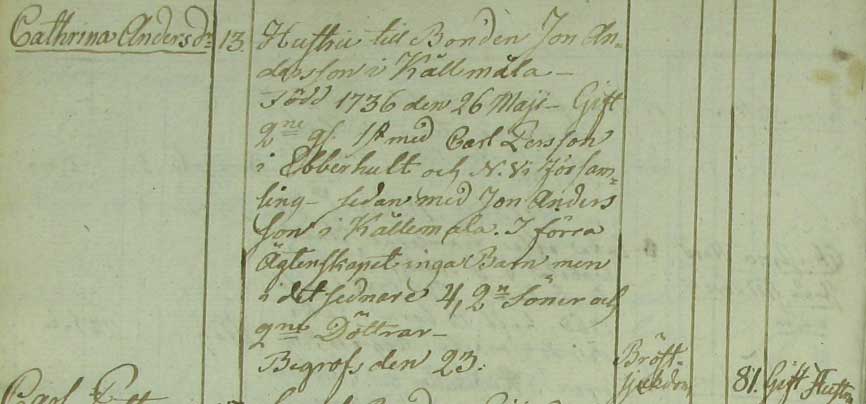 Cathrina Andersdr 13. Hustru till Bonden Jon An=
dersson i Källemåla —
Född 1736 den 26 Maji — Gift
2ne gr 1st med Carl Persson
i Ebberhult och N. Vi församl=
ling — sedan med Jon Anders
son i Källemåla. I förra
Ägtenskapet inga Barn men
i det sednare 4, 2ne Söner och
2ne Döttrar —
Begrofs den 23. Bröst-
sjukdom 81. Gift Hustru
Carl